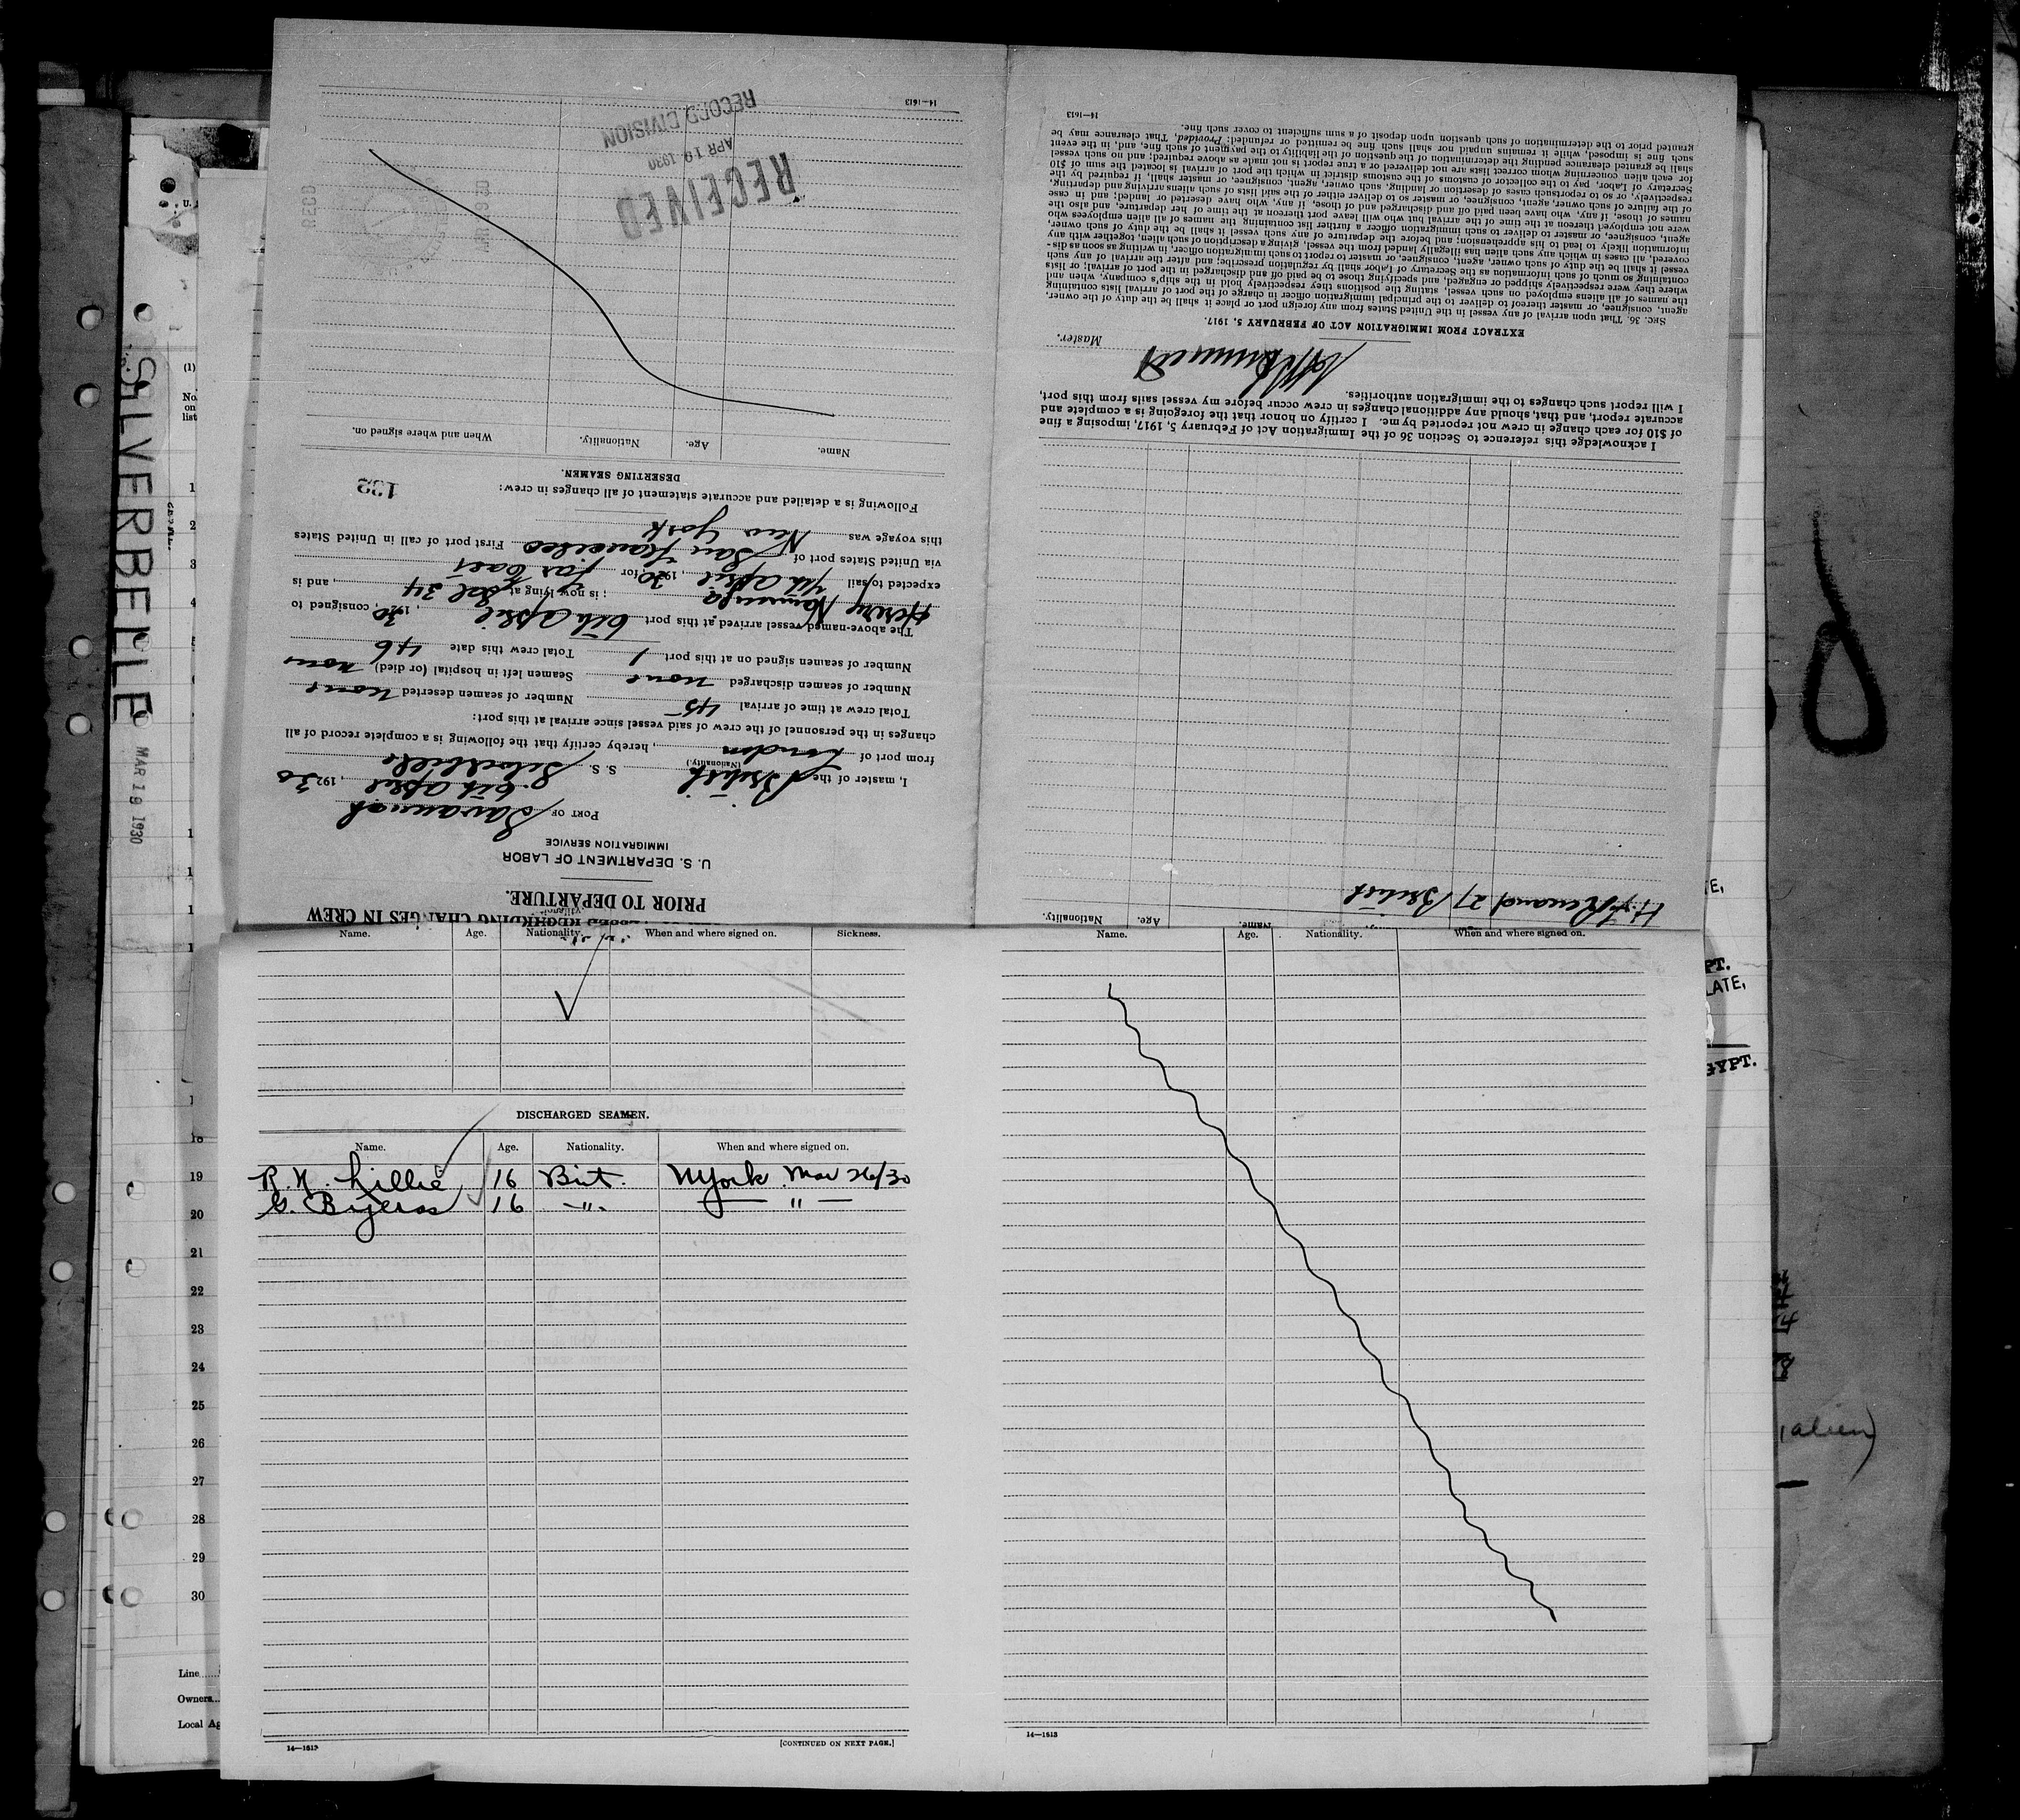 SILVERBELLE
MAR 19 1930
REPORT REGARDING CHANGES IN CREW
PRIOR TO DEPARTURE.
U. S. DEPARTMENT OF LABOR
IMMIGRATION SERVICE
PORT OF Savannah
6th April, 1930
I, master of the British S. S. Silverbelle
(Nationality.)
from port of London, hereby certify that the following is a complete record of all
changes in the personnel of the crew of said vessel since arrival at this port:
Total crew at time of arrival 45 Number of seamen deserted none
Number of seamen discharged none Seamen left in hospital (or died) none
Number of seamen signed on at this port 1 Total crew this date 46
The above-named vessel arrived at this port 6th April, 1930, consigned to
; is now lying at, and is
expected to sail 7th April, 1930, for Far East
via United States port of San Francisco First port of call in United States
this voyage was New York
Following is a detailed and accurate statement of all changes in crew:
132
DESERTING SEAMEN.
Name. Age. Nationality. When and where signed on.
RECEIVED
APR 19 1930
RECORD DIVISION
14—1613
Name. Age. Nationality.
27 British
I acknowledge this reference to Section 36 of the Immigration Act of February 5, 1917, imposing a fine
of $10 for each change in crew not reported by me. I certify on honor that the foregoing is a complete and
accurate report, and that, should any additional changes in crew occur before my vessel sails from this port,
I will report such changes to the immigration authorities.
Master.
EXTRACT FROM IMMIGRATION ACT OF FEBRUARY 5, 1917.
SEC. 36. That upon arrival of any vessel in the United States from any foreign port or place it shall be the duty of the owner,
agent, consignee, or master thereof to deliver to the principal immigration officer in charge of the port of arrival lists containing
the names of all aliens employed on such vessel, stating the positions they respectively hold in the ship's company, when and
where they were respectively shipped or engaged, and specifying those to be paid off and discharged in the port of arrival; or lists
containing so much of such information as the Secretary of Labor shall by regulation prescribe; and after the arrival of any such
vessel it shall be the duty of such owner, agent, consignee, or master to report to such immigration officer, in writing, as soon as dis-
covered, all cases in which any such alien has illegally landed from the vessel, giving a description of such alien, together with any
information likely to lead to his apprehension; and before the departure of any such vessel it shall be the duty of such owner,
agent, consignee, or master to deliver to such immigration officer a further list containing the names of all alien employees who
were not employed thereon at the time of the arrival but who will leave port thereon at the time of her departure, and also the
names of those, if any, who have been paid off and discharged, and of those, if any, who have deserted or landed; and in case
of the failure of such owner, agent, consignee, or master so to deliver either of the said lists of such aliens arriving and departing,
respectively, or so to report such cases of desertion or landing, such owner, agent, consignee, or master shall, if required by the
Secretary of Labor, pay to the collector of customs of the customs district in which the port of arrival is located the sum of $10
for each alien concerning whom correct lists are not delivered or a true report is not made as above required; and no such vessel
shall be granted clearance pending the determination of the question of the liability to the payment of such fine, and, in the event
such fine is imposed, while it remains unpaid nor shall such fine be remitted or refunded: Provided, That clearance may be
granted prior to the determination of such question upon deposit of a sum sufficient to cover such fine.
14—1613
Name. Age. Nationality. When and where signed on. Sickness.
DISCHARGED SEAMEN.
Name. Age. Nationality. When and where signed on.
R. N. Lillie 16 Brit. N York Mar 26/30
G. Byeros 16 — " — — " —
14—1613 [CONTINUED ON NEXT PAGE.]
Name. Age. Nationality. When and where signed on.
14—1613
(1)
No.
on
list
1
2
3
4
18
19
20
21
22
23
24
25
26
27
28
29
30
Line
Owners
Local Ag
PT.
LATE,
GYPT.
(alien)